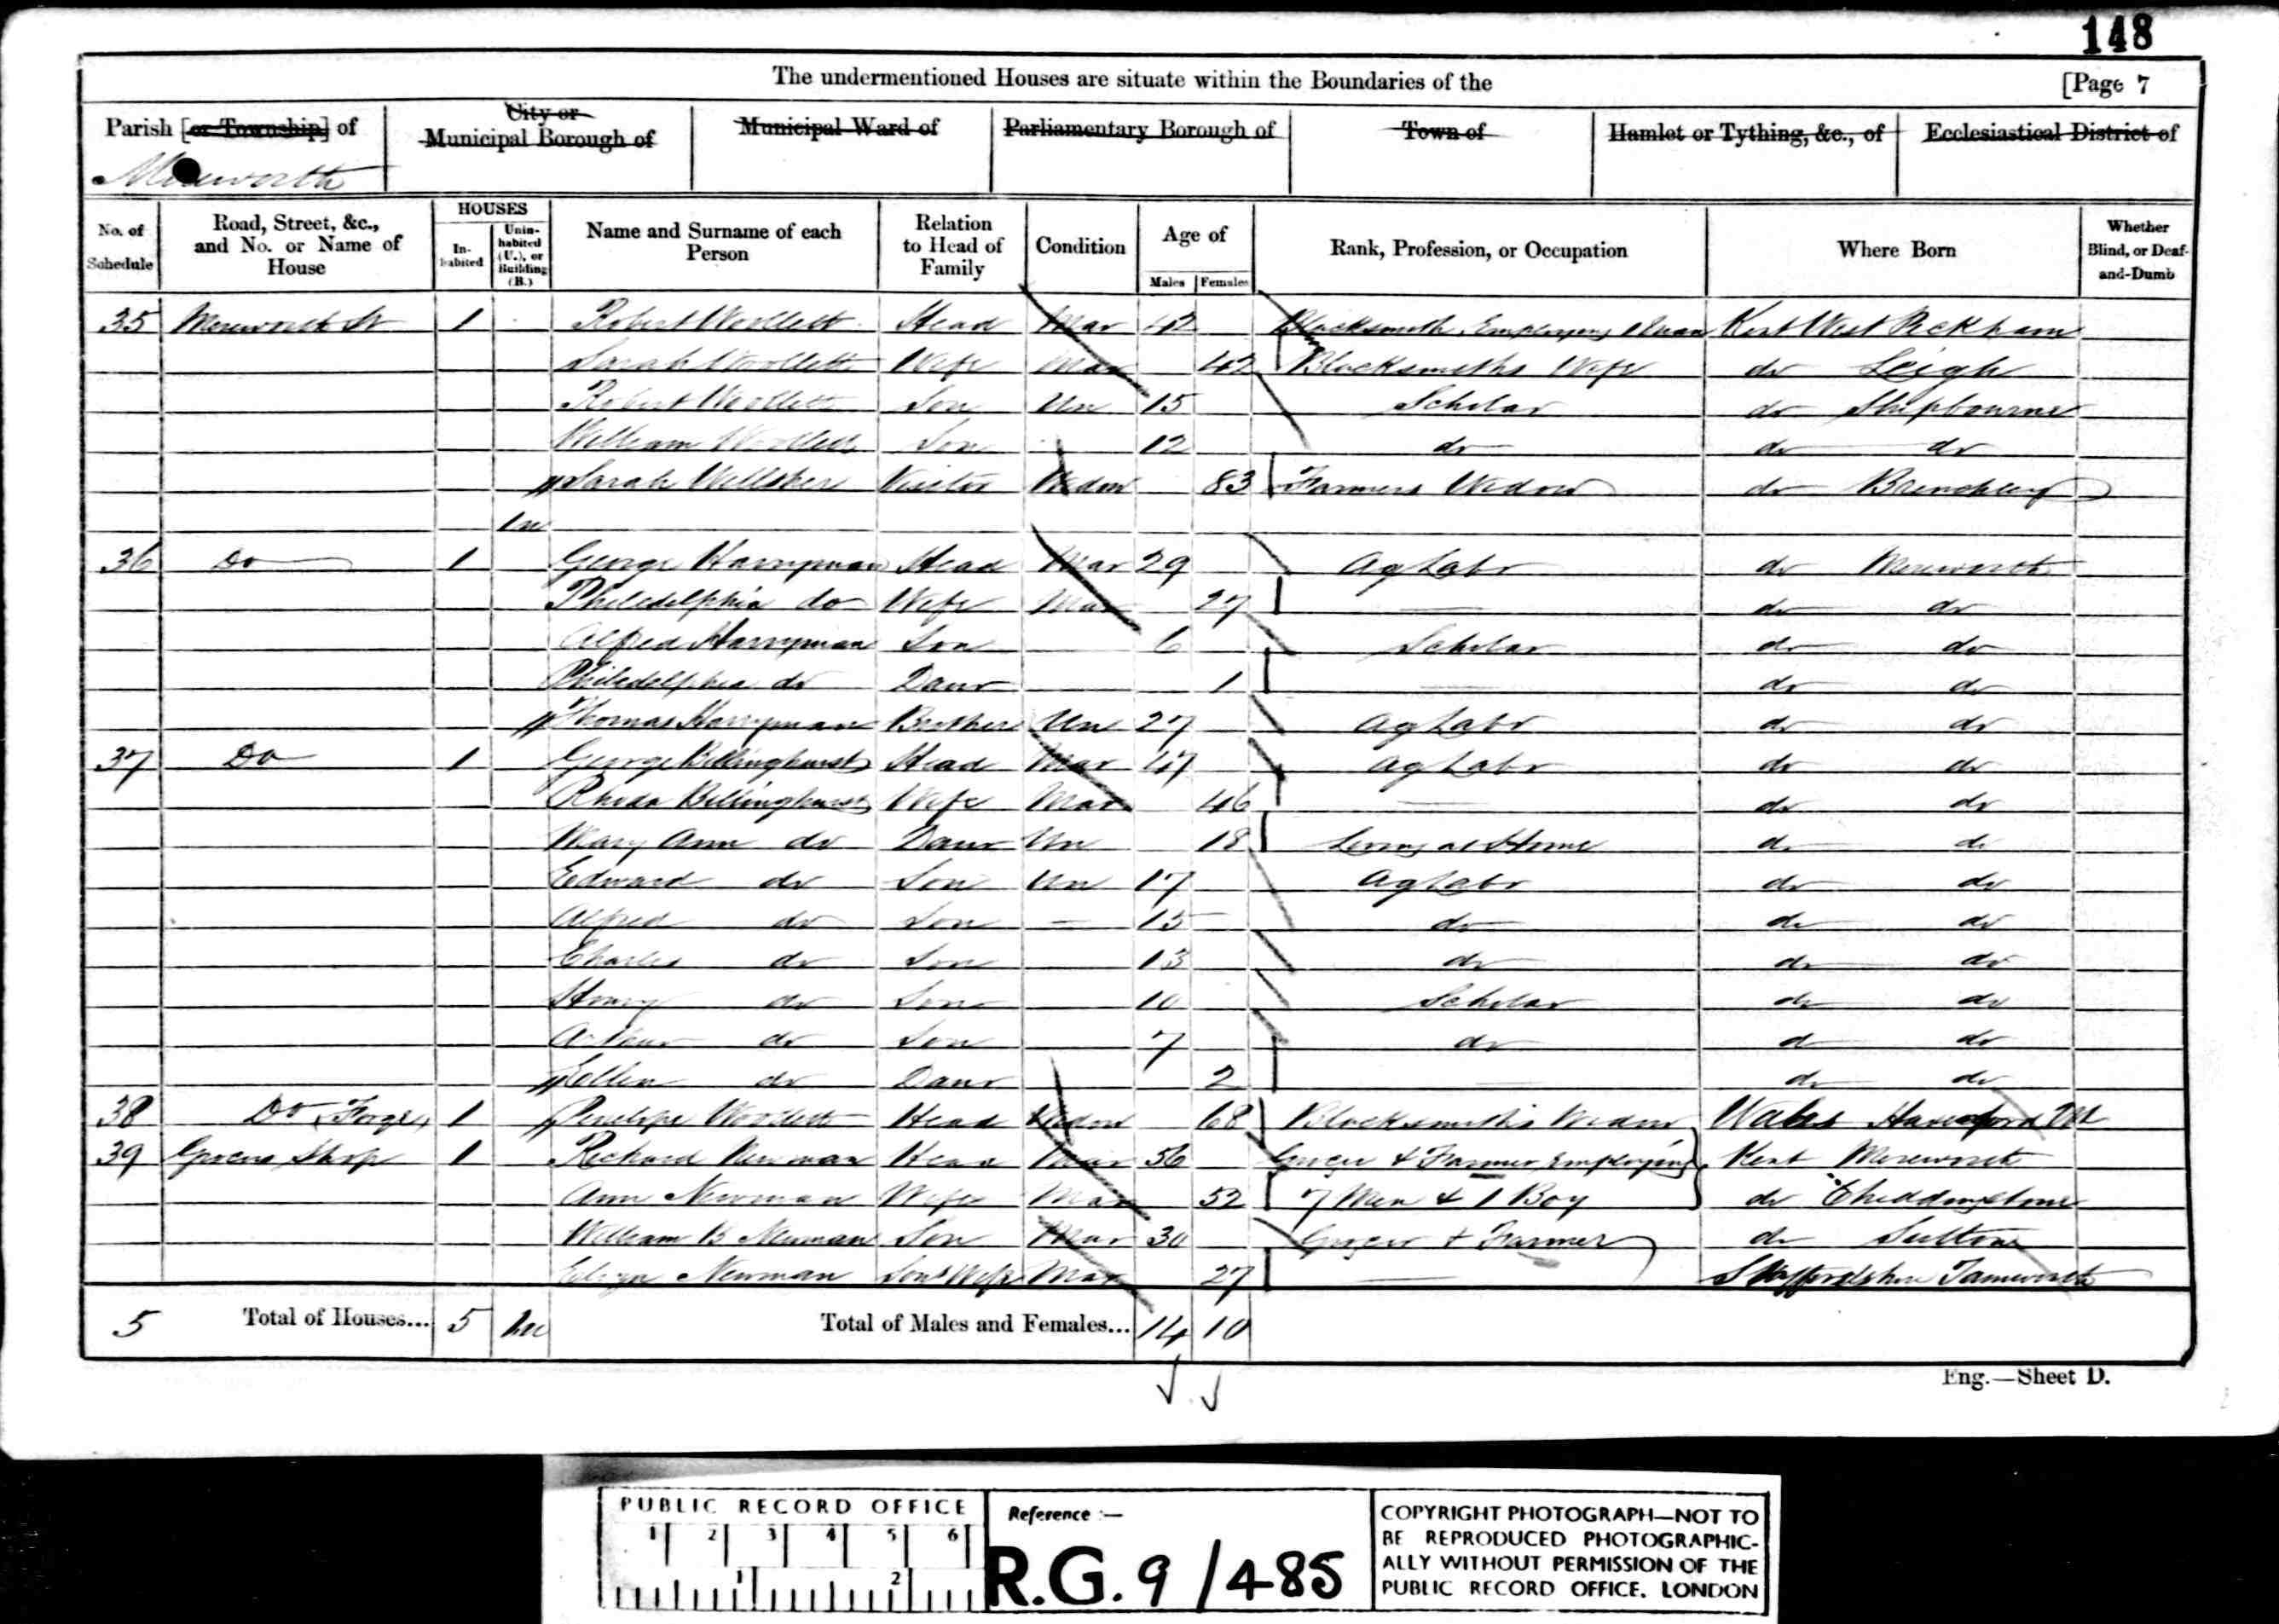 148
The undermentioned Houses are situate within the Boundaries of the [Page 7
Parish [or Township] of
City or Municipal Borough of
Municipal Ward of
Parliamentary Borough of
Town of
Hamlet or Tything, &c., of
Ecclesiastical District of
Mereworth
No. of Schedule
Road, Street, &c., and No. or Name of House
HOUSES
In-habited
Unin-habited (U.), or Building (B.)
Name and Surname of each Person
Relation to Head of Family
Condition
Age of
Males Females
Rank, Profession, or Occupation
Where Born
Whether Blind, or Deaf-and-Dumb
35 Mereworth St 1 Robert Woollett Head Mar 42 Blacksmith Employing 1 Man Kent West Peckham
Sarah Woollett Wife Mar 42 Blacksmiths Wife do Leigh
Robert Woollett Son Un 15 Scholar do Shipbourne
William Woollett Son 12 do do do
Sarah Visitor Widow 83 Farmers Widow do Brenchley
36 Do 1 George Harryman Head Mar 29 Ag Labr do Mereworth
Philedelphia do Wife Mar 27 do do
Alfred Harryman Son 6 Scholar do do
Philedelphia do Daur 1 do do
Thomas Harryman Brother Un 27 Ag Labr do do
37 Do 1 George Billinghurst Head Mar 47 Ag Labr do do
Rhoda Billinghurst Wife Mar 46 do do
Mary Ann do Daur Un 18 at Home do do
Edward do Son Un 17 Ag Labr do do
Alfred do Son 15 do do do
Charles do Son 13 do do do
Henry do Son 10 Scholar do do
Arthur do Son 7 do do do
Ellen do Daur 2 do do
38 Do Forge 1 Penelope Woollett Head Widow 68 Blacksmith's Widow Wales
39 Grocers Shop 1 Richard Newman Head Mar 56 Grocer & Farmer Employing Kent Mereworth
Ann Newman Wife Mar 52 7 Men & 1 Boy do Chiddingstone
William B Newman Son Mar 30 Grocer & Farmer do Sutton
Newman Sons Wife Mar 27 Staffordshire Tamworth
5 Total of Houses... 5 Total of Males and Females... 14 10
Eng.—Sheet D.
PUBLIC RECORD OFFICE
1 2 3 4 5 6
1 2
Reference :—
R.G. 9/485
COPYRIGHT PHOTOGRAPH—NOT TO
BE REPRODUCED PHOTOGRAPHIC-
ALLY WITHOUT PERMISSION OF THE
PUBLIC RECORD OFFICE. LONDON